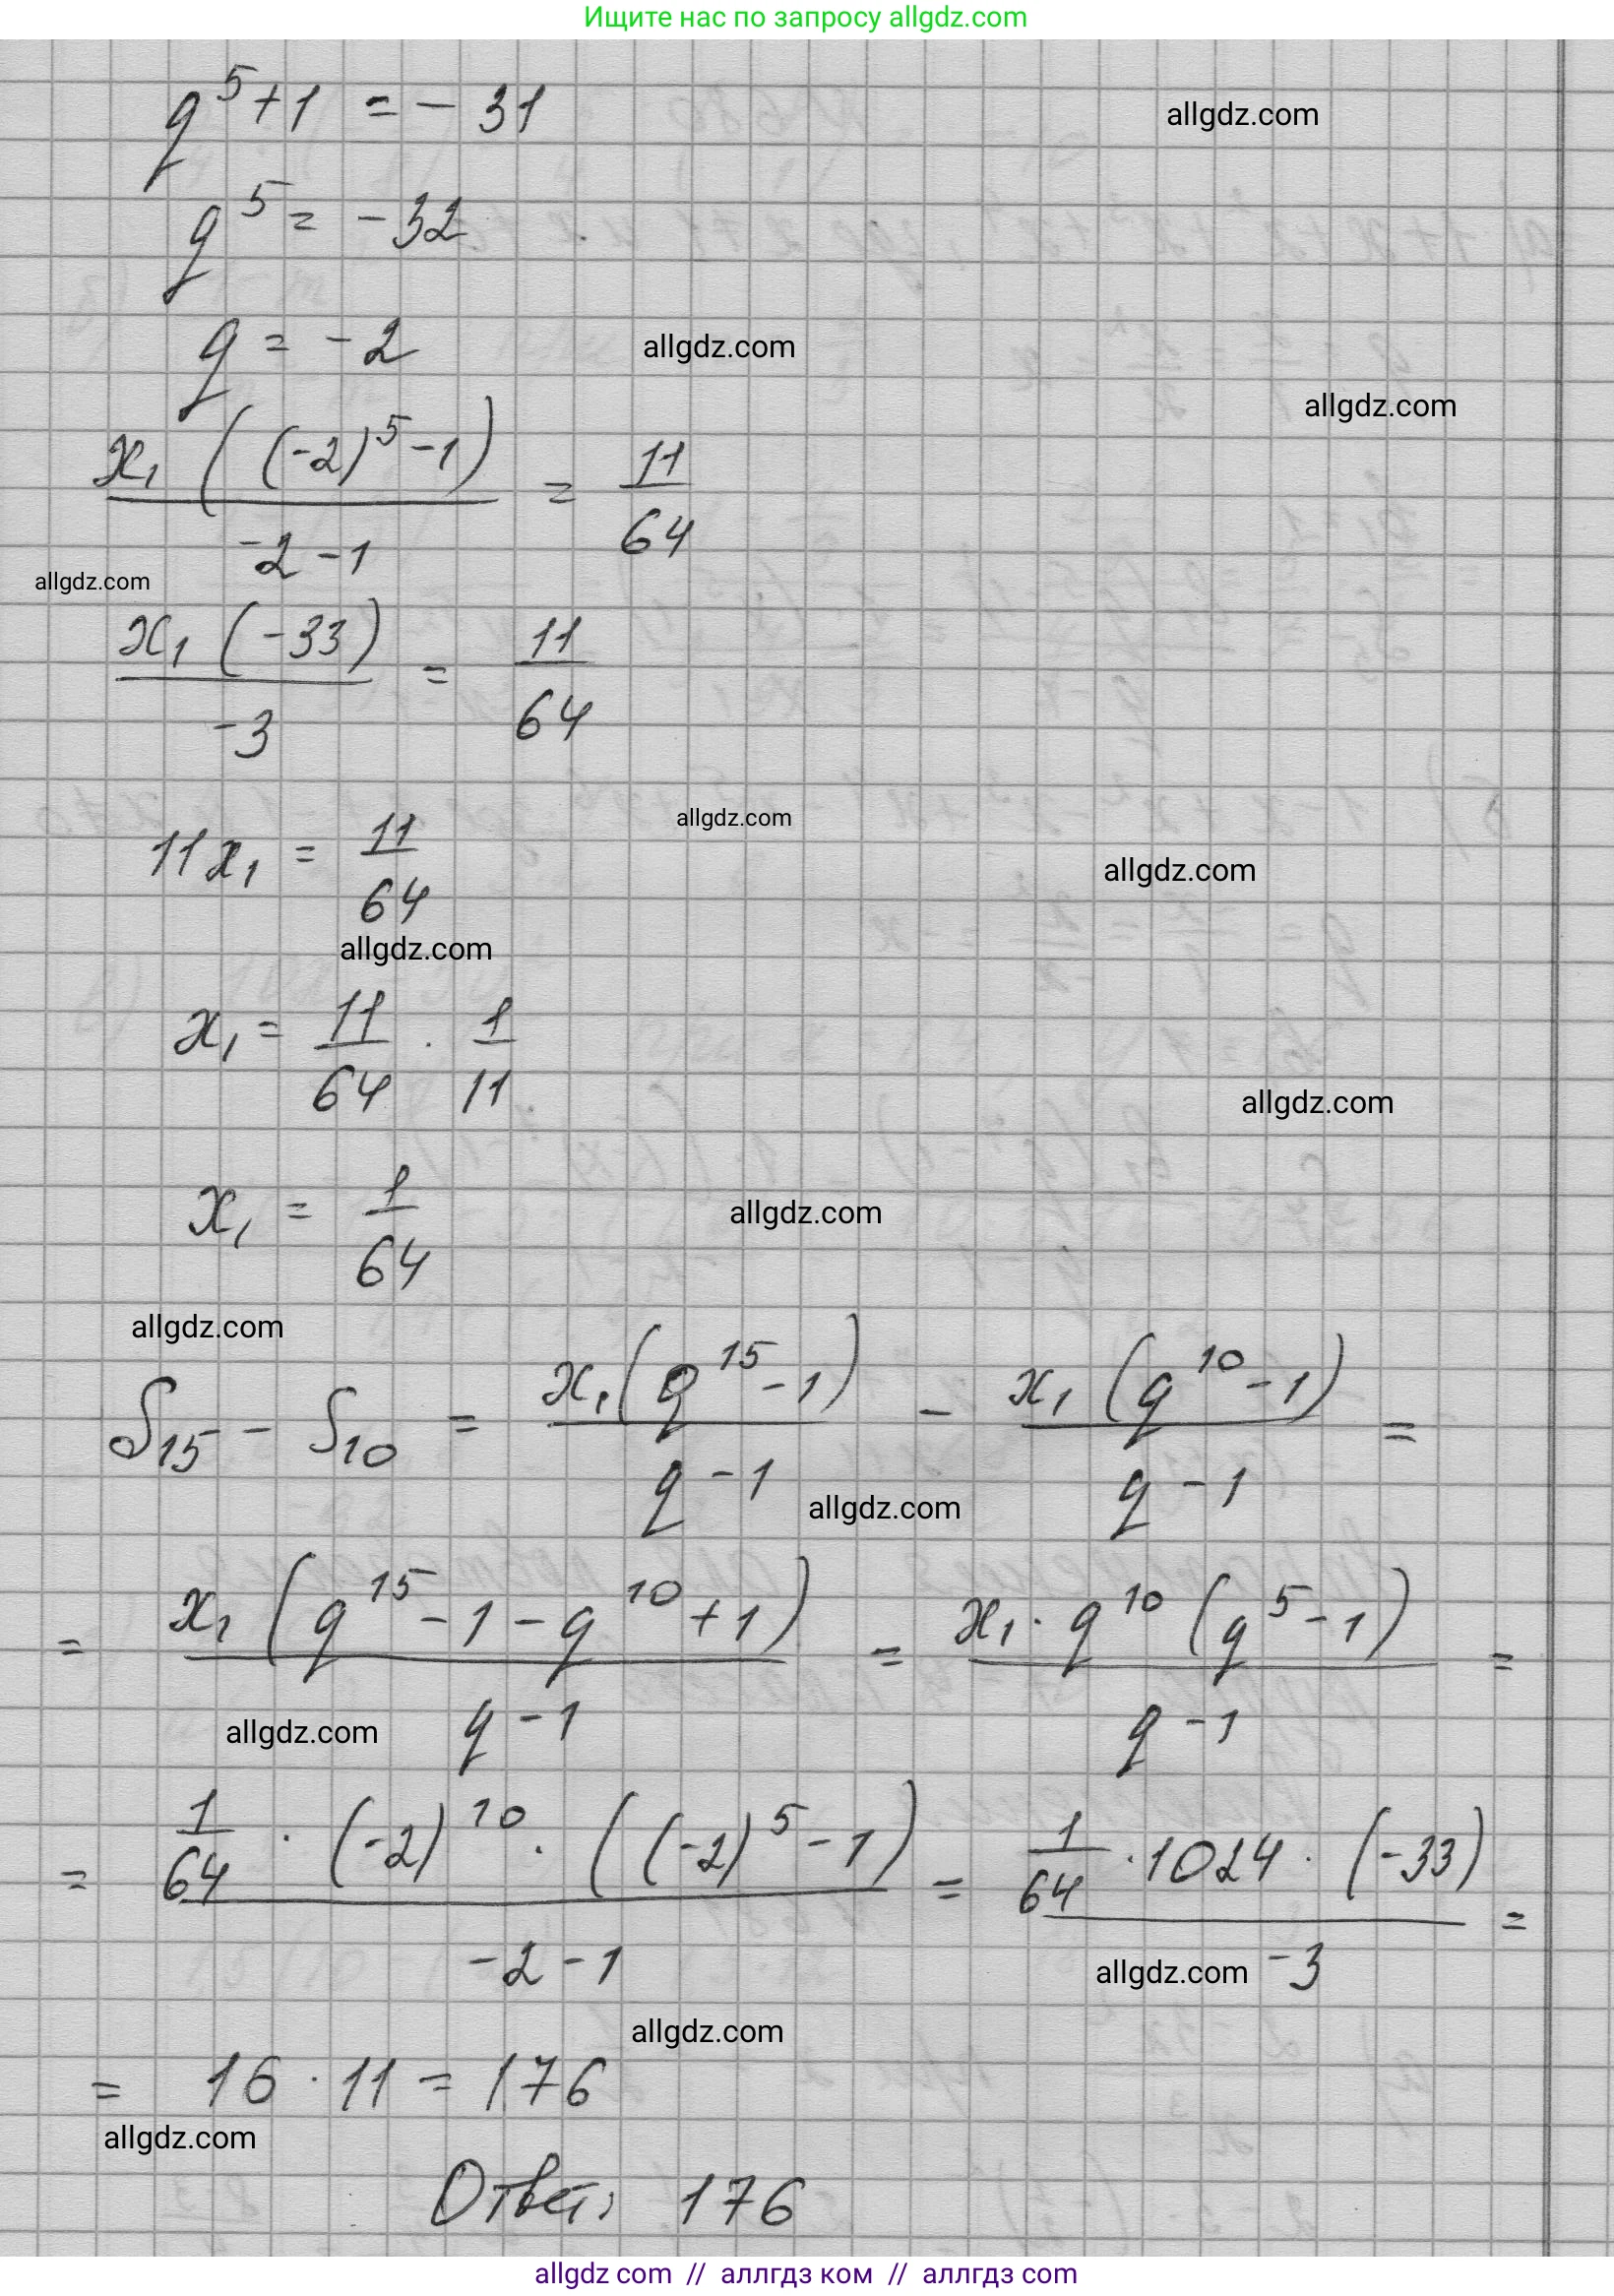 Ищите нас по запросу allgdz.com
q^5 + 1 = - 31
allgdz.com
q^5 = - 32
q = - 2
allgdz.com
allgdz.com
x₁ ((-2)^5 - 1) / (-2 - 1) = 11/64
allgdz.com
x₁ (-33) / (-3) = 11/64
allgdz.com
11x₁ = 11/64
allgdz.com
allgdz.com
x₁ = 11/64 · 1/11
allgdz.com
x₁ = 1/64
allgdz.com
allgdz.com
S₁₅ - S₁₀ = x₁(q^15 - 1) / (q - 1) - x₁(q^10 - 1) / (q - 1) =
allgdz.com
= x₁(q^15 - 1 - q^10 + 1) / (q - 1) = x₁ · q^10 (q^5 - 1) / (q - 1) =
allgdz.com
= 1/64 · (-2)^10 · ((-2)^5 - 1) / (-2 - 1) = 1/64 · 1024 · (-33) / (-3) =
allgdz.com
allgdz.com
= 16 · 11 = 176
allgdz.com
Ответ: 176
allgdz com // аллгдз ком // аллгдз com